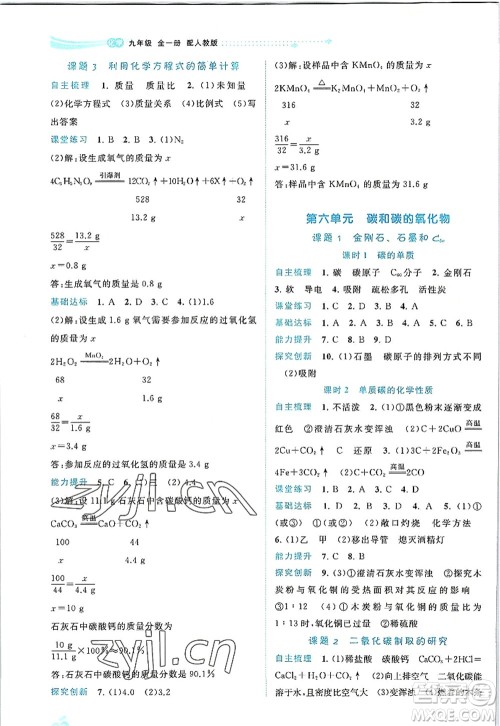 化学 九年级 全一册 配人教版
课题 3 利用化学方程式的简单计算
自主梳理 1. 质量 质量 比 2. (1)未知量
(2)化学方程式 (3)质量关系 (4)比例式 (5)写
出答案
课堂练习 1. B 2. B 3. (1)N₂
(2)解:设生成氧气的质量为 x
4C₃H₅N₃O₉ 引爆剂 12CO₂↑+10H₂O↑+6N₂↑+O₂↑
528 32
13.2 g x
528/32 = 13.2 g/x
x=0.8 g
答:生成氧气的质量为 0.8 g
基础达标 1. A 2. D 3. C 4. (1)1.6
(2)解:设生成 1.6 g 氧气需要参加反应的过氧化氢
的质量为 x
2H₂O₂ MnO₂ 2H₂O+O₂↑
68 32
x 1.6 g
68/32 = x/1.6 g
x=3.4 g
答:参加反应的过氧化氢的质量为 3.4 g
能力提升 5. B 6. (1)4.4
(2)解:设 11.1 g 石灰石中含碳酸钙的质量为 x
CaCO₃ 高温 CaO+CO₂↑
100 44
x 4.4 g
100/44 = x/4.4 g
x=10 g
石灰石中碳酸钙的质量分数为
10 g/11.1 g ×100%≈90.1%
答:石灰石中碳酸钙的质量分数为 90.1%
探究创新 7. (1)4.0 (2)3.2
(3)解:设样品中含 KMnO₄ 的质量为 x
2KMnO₄ △ K₂MnO₄+MnO₂+O₂↑
316 32
x 3.2 g
316/32 = x/3.2 g
x=31.6 g
答:样品中含 KMnO₄ 的质量为 31.6 g
第六单元 碳和碳的氧化物
课题 1 金刚石、石墨和 C₆₀
课时 1 碳的单质
自主梳理 1. 碳 碳原子 C₆₀分子 2. 金刚石
3. 软 导电 4. 吸附 疏松多孔 活性炭
课堂练习 1. B 2. D 3. B 4. A
基础达标 1. A 2. D 3. B 4. C 5. D 6. A
能力提升 7. B 8. C 9. A
探究创新 10. (1)石墨 碳原子的排列方式不同
(2)吸附
课时 2 单质碳的化学性质
自主梳理 1. 不活泼 2. (1)①黑色粉末逐渐变成
红色 ②澄清石灰水变浑浊 (2)C+2CuO 高温
2Cu+CO₂↑ C 还原 3. (1)3C+2Fe₂O₃ 高温
4Fe+3CO₂↑ (2)C+CO₂ 高温 2CO
课堂练习 1. A 2. B 3. D
基础达标 1. D 2. D 3. B 4. C 5. (1)①
(或②) ③(或④) (2)敞口灼烧 (3)②(或①)
6. (1)乙 甲 (2)移动 (3)熄灭酒精灯
能力提升 7. C 8. C
探究创新 9. (1)③ (2)①澄清石灰水变浑浊
②全部变红 ③该实验条件下,木炭粉与氧化铜恰
好完全反应的最佳质量比介于 1∶11 和 1∶12 之
间(或该实验条件下,木炭粉与氧化铜的质量比为
1∶12时,恰好完全反应) (3)稀硫酸
课题 2 二氧化碳制取的研究
自主梳理 1. (1)稀盐酸 碳酸钙 CaCO₃+
2HCl══CaCl₂+H₂O+CO₂↑ (2)二氧化碳能
溶于水 密度比空气的大 2. (2)实验装置
zyjl.cn
zyjl.cn